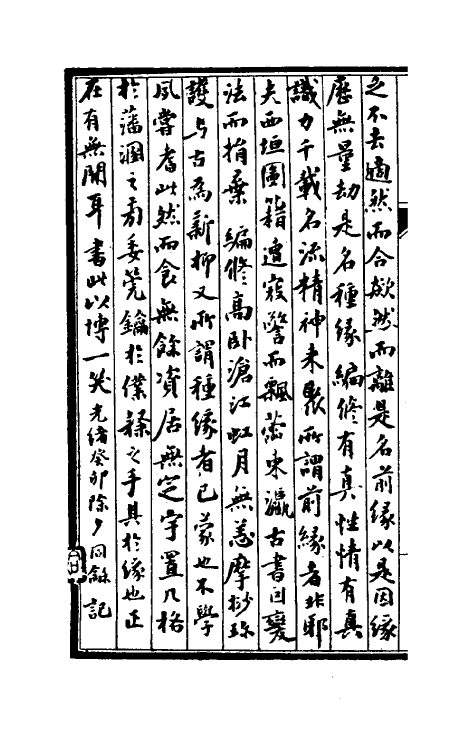 之不去適然而合歘然而離是名前緣以是因緣
歷無量劫是名種緣編修有真性情有真
識力千載名流精神来聚所謂前緣者非耶
夫西垣圖籍遭寇警而飄蕩東瀛古書因變
法而捐棄編修高卧滄江虹月無恙摩抄珎
護与古為新抑又所謂種緣者已蒙也不學
夙嘗耆此然而食無餘資居無定宇置几格
於藩溷之旁委筦鑰於僕隸之手其於緣也正
在有無間耳書此以博一笑光緒癸卯除夕同龢記